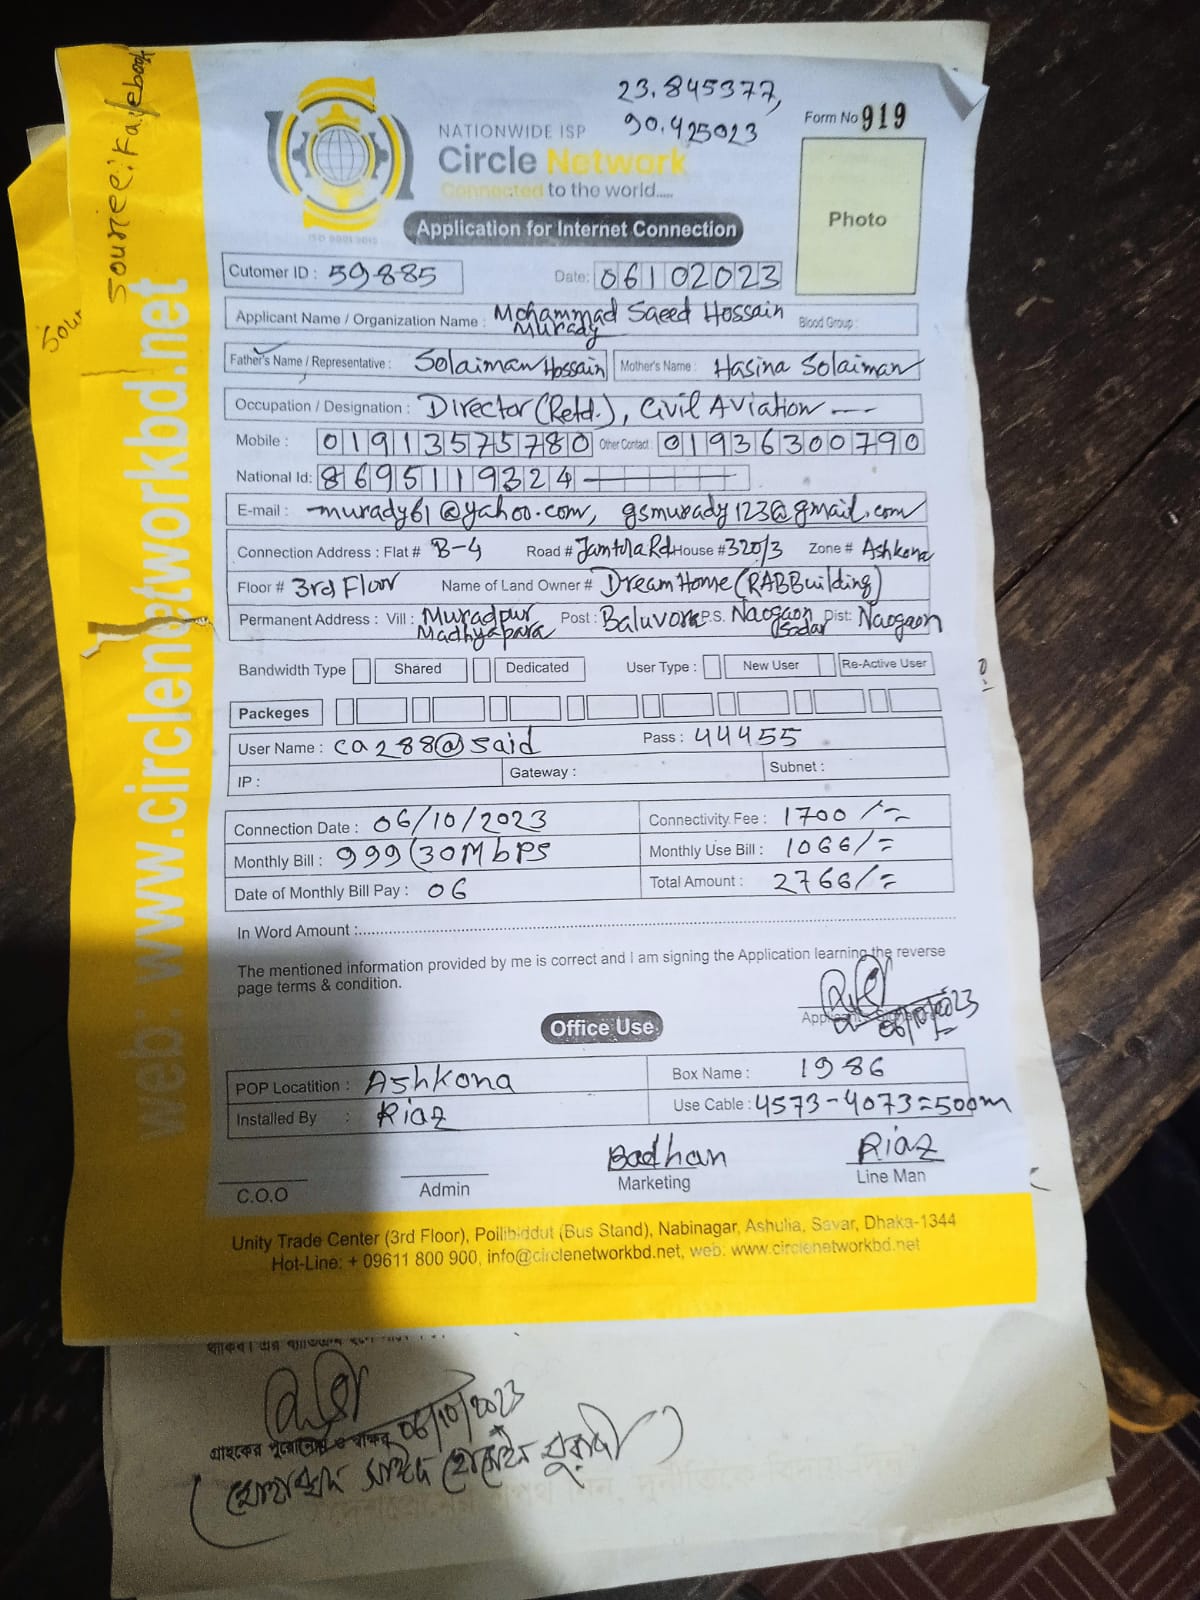 23.845377,
90.425023
Form No 919
NATIONWIDE ISP
Circle Network
Connected to the world.....
ISO 9001:2015
Photo
Application for Internet Connection
Cutomer ID : 59885 Date: 06102023
Applicant Name / Organization Name : Mohammad Saeed Hossain Murady Blood Group :
Father's Name / Representative : Solaiman Hossain Mother's Name : Hasina Solaiman
Occupation / Designation : Director (Retd.), Civil Aviation
Mobile : 01913575780 Other Contact : 01936300790
National Id: 8695119324
E-mail : murady61@yahoo.com, gsmurady123@gmail.com
Connection Address : Flat # B-4 Road # Jamtola Rd House # 320/3 Zone # Ashkona
Floor # 3rd Floor Name of Land Owner # Dream Home (RAB Building)
Permanent Address : Vill : Muradpur Madhyapara Post : Baluvora P.S. Naogaon Sadar Dist: Naogaon
Bandwidth Type Shared Dedicated User Type : New User Re-Active User
Packeges
User Name : ca288@said Pass : 44455
IP : Gateway : Subnet :
Connection Date : 06/10/2023 Connectivity Fee : 1700/=
Monthly Bill : 999 (30Mbps Monthly Use Bill : 1066/=
Date of Monthly Bill Pay : 06 Total Amount : 2766/=
In Word Amount :
The mentioned information provided by me is correct and I am signing the Application learning the reverse
page terms & condition.
06/10/2023
Office Use
POP Locatition : Ashkona Box Name : 1986
Installed By : Riaz Use Cable : 4573-4073=500m
Badhan Riaz
C.O.O Admin Marketing Line Man
Unity Trade Center (3rd Floor), Pollibiddut (Bus Stand), Nabinagar, Ashulia, Savar, Dhaka-1344
Hot-Line: + 09611 800 900, info@circlenetworkbd.net, web: www.circlenetworkbd.net
web: www.circlenetworkbd.net
06/10/2023
গ্রাহকের
(মোহাম্মদ সাঈদ হোসাইন মুরাদী)